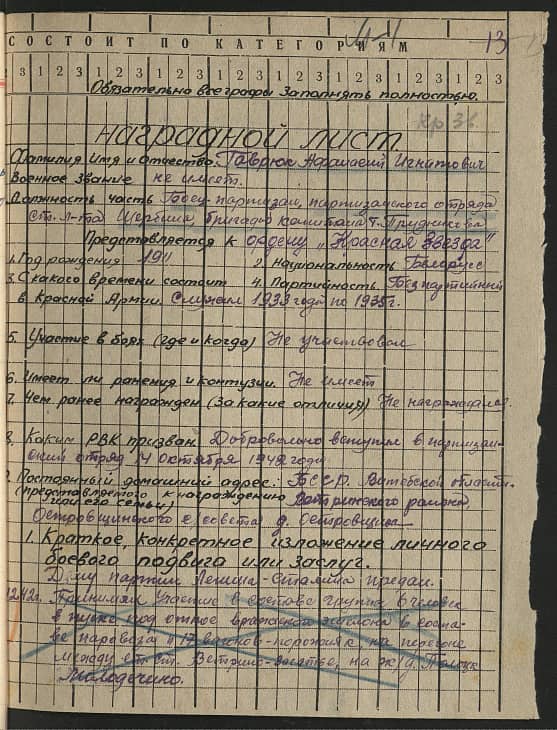 СОСТОИТ ПО КАТЕГОРИЯМ
13
3 1 2 3 1 2 3 1 2 3 1 2 3 1 2 3 1 2 3
Обязательно все графы заполнять полностью.
Наградной лист.
Фамилия Имя и отчество: Гаврюк Афанасий Игнатович
Военное звание не имеет.
Должность часть Боец-партизан, партизанского отряда
ст. л-та Щербина, бригады капитана т.
Представляется к ордену „Красная Звезда"
1. Год рождения 1911 2. Национальность Белорусс
3. С какого времени состоит 4. Партийность. Безпартийный
в Красной Армии. Служил 1933 года по 1935 г.
5. Участие в боях (где и когда) Не участвовал
6. Имеет ли ранения и контузии. Не имеет
7. Чем ранее награжден (за какие отличия) Не награждался
8. Каким РВК призван. Добровольно вступил в партизан-
ский отряд 14 октября 1942 года
9. Постоянный домашний адрес: БССР. Витебской области.
(представляемого к награждению Ветринского района,
или его семьи)
Островщинского с/совета д. Островщина
1. Краткое, конкретное изложение личного
боевого подвига или заслуг.
Делу партии Ленина-Сталина предан.
12.42г. Принимал участие в составе группы 6 человек
в пуске под откос вражеского эшелона в соста-
ве паровоза и 17 вагонов-порожняк, на перегоне
между ст. ст. Ветрино на ж/д. Полоцк
Молодечно.